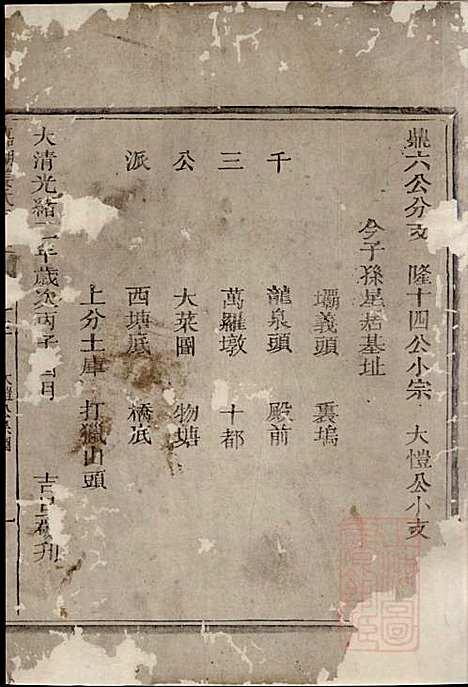 鼎六公分支 隆十四公小宗 大愷公小支
今子孫星居基址
壩義頭 裏塢
千 龍泉頭 殿前
三 萬羅墩 十都
公 大菜圖 物塘
派 西塘底 橋底
上分土庫 打獵山頭
大清光緒二年歲次丙子 月 吉旦 刊